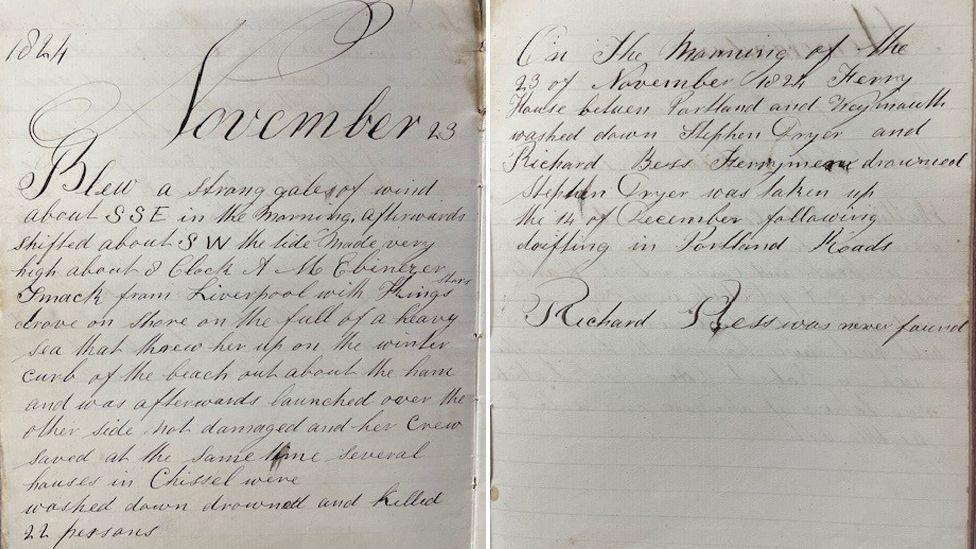 1824
November 23
Blew a strong gales of wind
about SSE in the Morning, afterwards
shifted about SW the tide made very
high about 8 Clock A M Ebenezer
Smack from Liverpool with Kings stors
drove on shore on the full of a heavy
sea that threw her up on the winter
curb of the beach out about the ham
and was afterwards launched over the
other side not damaged and her Crew
saved at the same time several
houses in Chissel were
washed down drowned and killed
22 persons
On The Morning of the
23 of November 1824 Ferry
House betuen Portland and Weymouth
washed down Stephen Dryer and
Richard Bess Ferrymen drowned
Stephen Dryer was taken up
the 14 of December following
drifting in Portland Roads
Richard Bess was never found